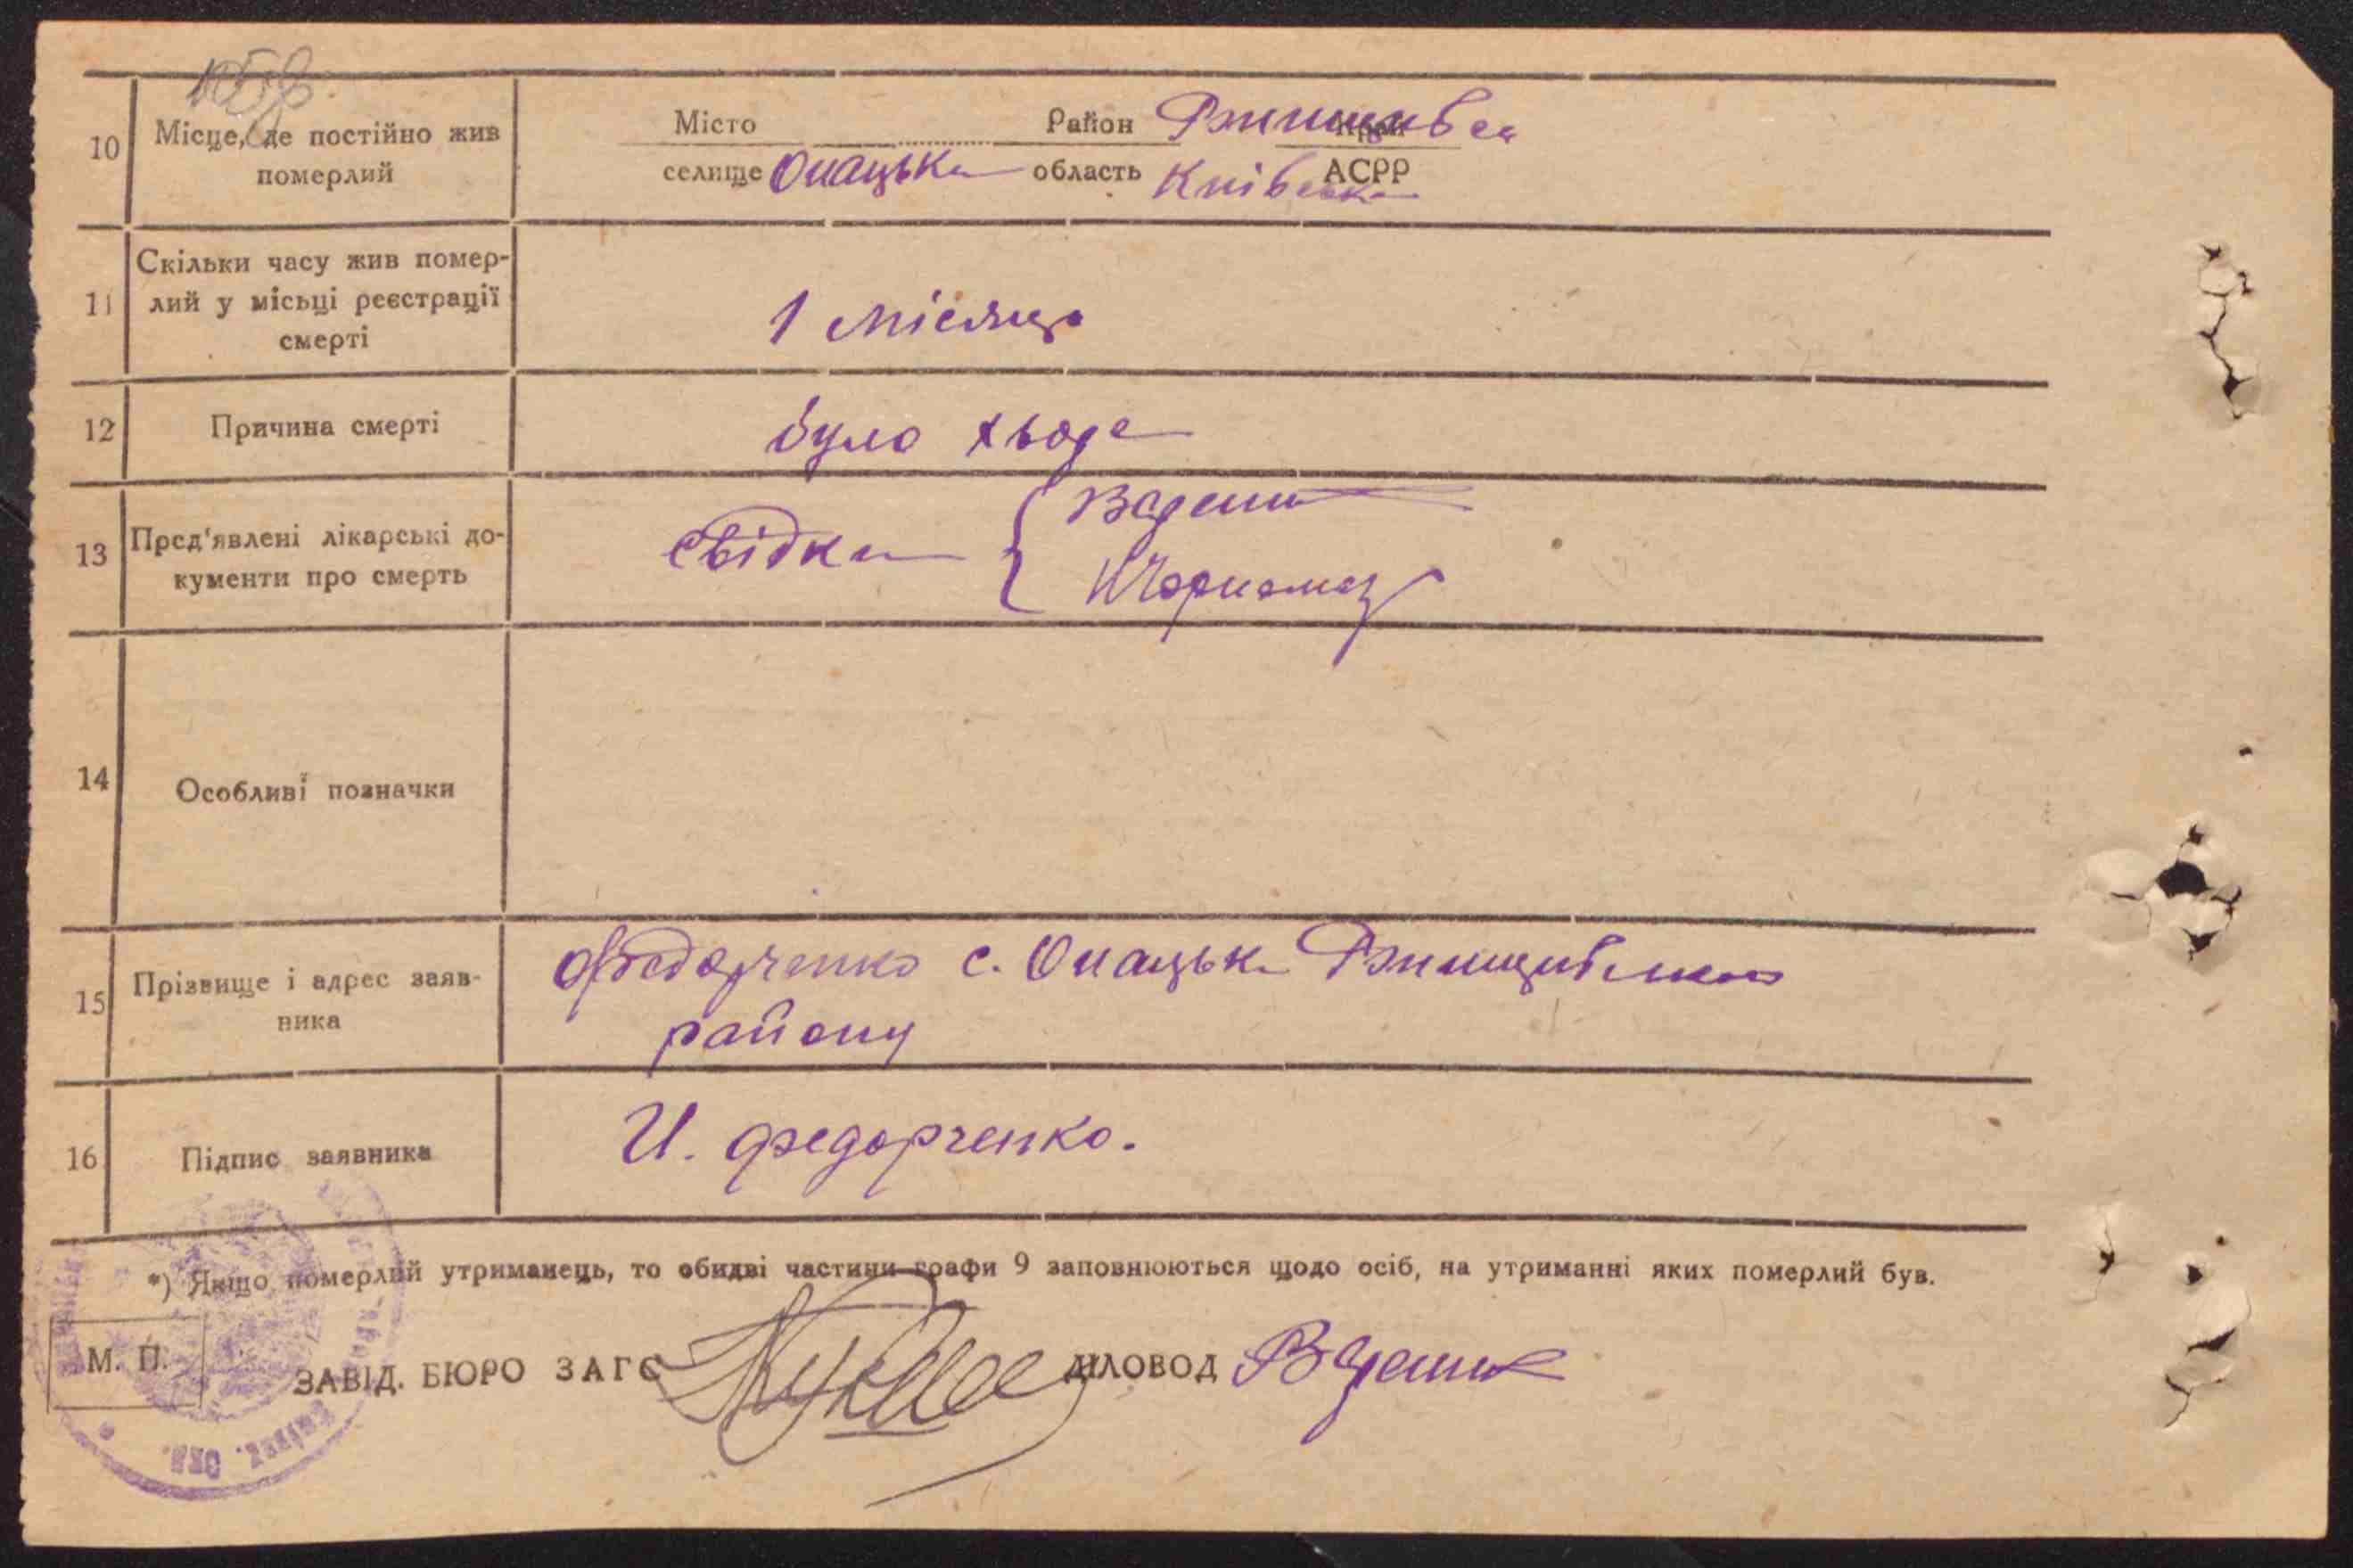 10 Місце, де постійно жив померлий
Місто Район Ржищивск Край
селище Онацьки область Київська АСРР
11 Скільки часу жив помер-
лий у місьці реєстрації
смерті
1 місяць
12 Причина смерті
було хворе
13 Пред'явлені лікарські до-
кументи про смерть
свідки
Чорномаз
14 Особливі позначки
15 Прізвище і адрес заяв-
ника
Федорченко с. Онацьки Ржищивського
району
16 Підпис заявника
И. Федорченко.
*) Якщо померлий утриманець, то обидві частини графи 9 заповнюються щодо осіб, на утриманні яких померлий був.
М. П.
ЗАВІД. БЮРО ЗАГС ДІЛОВОД